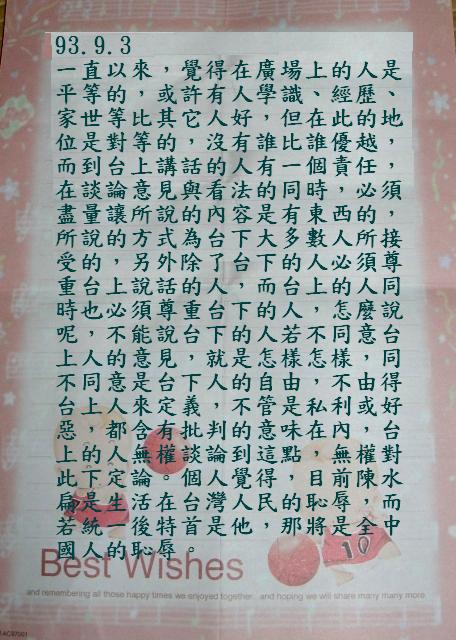 93.9.3
一直以來，覺得在廣場上的人是
平等的，或許有人學識、經歷、
家世等比其它人好，但在此的地
位是對等的，沒有誰比誰優越，
而到台上講話的人有一個責任，
在談論意見與看法的同時，必須
盡量讓所說的內容是有東西的，
所說的方式為台下大多數人所接
受的，另外除了台下的人必須尊
重台上說話的人，而台上的人同
時也必須尊重台下的人，怎麼說
呢，不能說台下的人若不同意台
上人的意見，就是怎樣怎樣，同
不同意是台下人的自由，不由得
台上人來定義，不管是私利或好
惡，都含有批判的意味在內，台
上的人無權談論到這點，無權對
此下定論。個人覺得，目前陳水
扁是生活在台灣人民的恥辱，而
若統一後特首是他，那將是全中
國人的恥辱。
Best Wishes
and remembering all those happy times we enjoyed together and hoping we will share many many more
10